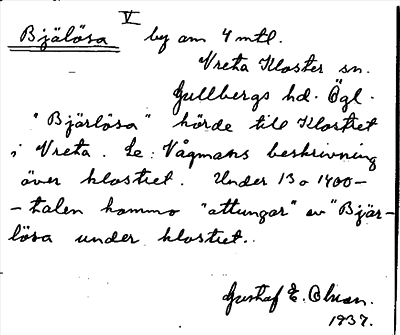 V
Bjälösa by om 4 mtl.
Vreta Kloster sn.
Gullbergs hd. Ögl.
"Bjärlösa" hörde till Klostret
i Vreta. Se: Vågmans beskrivning
över klostret. Under 13 o 1400-
-talen kommo "attungar" av "Bjär-
lösa under klostret.
Gustaf E. Olsson.
1937.